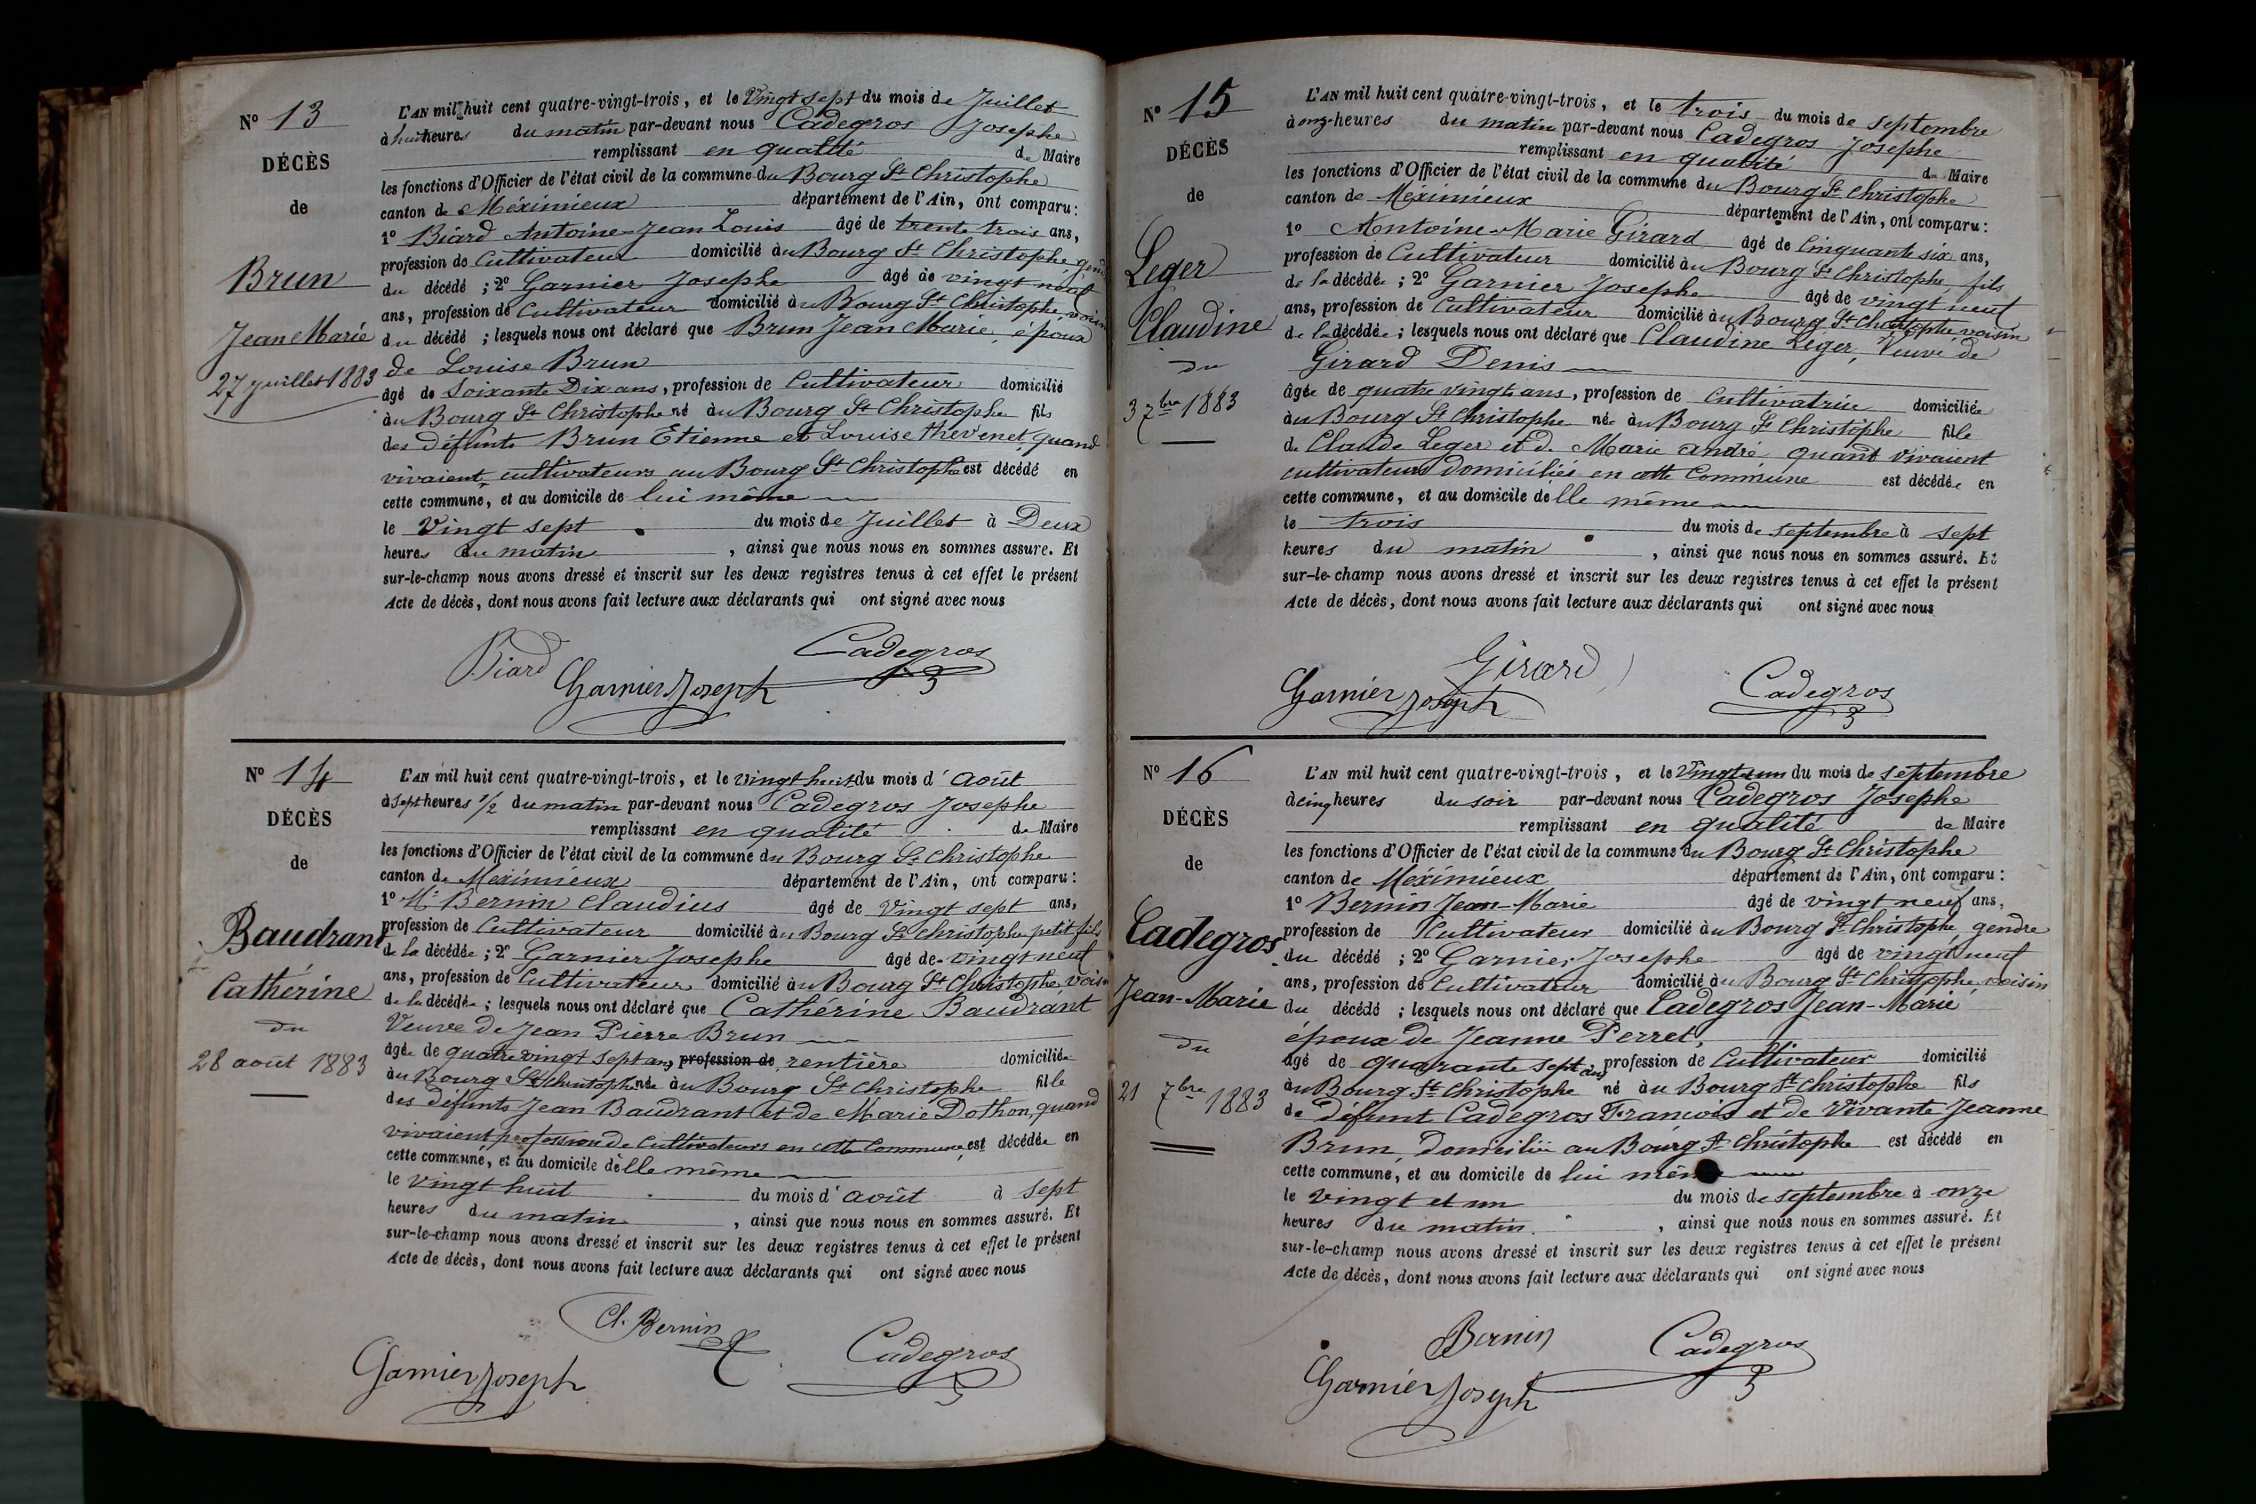 N° 13
DÉCÈS
de
Brun
Jean Marie
27 juillet 1883
L'AN mil huit cent quatre-vingt-trois, et le Vingt sept du mois de Juillet
à huit heures du matin par-devant nous Cadegros Josephe
remplissant en qualité de Maire
les fonctions d'Officier de l'état civil de la commune du Bourg St Christophe
canton de Méximieux département de l'Ain, ont comparu :
1° Biard Antoine-Jean Louis âgé de trente trois ans,
profession de Cultivateur domicilié au Bourg St Christophe, gendre
du décédé ; 2° Garnier Josephe âgé de vingt neuf
ans, profession de Cultivateur domicilié au Bourg St Christophe, voisin
du décédé ; lesquels nous ont déclaré que Brun Jean Marie, époux
de Louise Brun
âgé de Soixante Dix ans, profession de Cultivateur domicilié
au Bourg St Christophe né au Bourg St Christophe fils
des défunts Brun Etienne et Louise thevenet, quand
vivaient cultivateurs au Bourg St Christophe est décédé en
cette commune, et au domicile de lui même
le Vingt sept du mois de Juillet à Deux
heures du matin , ainsi que nous nous en sommes assure. Et
sur-le-champ nous avons dressé et inscrit sur les deux registres tenus à cet effet le présent
Acte de décès, dont nous avons fait lecture aux déclarants qui ont signé avec nous
Biard Cadegros
Garnier Joseph
N° 14
DÉCÈS
de
Baudrant
Cathérine
du
28 août 1883
L'AN mil huit cent quatre-vingt-trois, et le vingt huit du mois d'août
à sept heures 1/2 du matin par-devant nous Cadegros Josephe
remplissant en qualité de Maire
les fonctions d'Officier de l'état civil de la commune du Bourg St Christophe
canton de Meximieux département de l'Ain, ont comparu :
1° Mr Bernin Claudius âgé de Vingt sept ans,
profession de Cultivateur domicilié au Bourg St Christophe petit fils
de la décédée ; 2° Garnier Josephe âgé de vingt neuf
ans, profession de Cultivateur domicilié au Bourg St Christophe, voisin
de la décédée ; lesquels nous ont déclaré que Cathérine Baudrant
Veuve de Jean Pierre Brun
âgée de quatre vingt sept ans profession de rentière domiciliée
au Bourg St Christophe née au Bourg St Christophe fille
des défunts Jean Baudrant et de Marie Dothon, quand
vivaient profession de Cultivateurs en cette Commune, est décédée en
cette commune, et au domicile d'elle même
le vingt huit du mois d'août à sept
heures du matin , ainsi que nous nous en sommes assuré. Et
sur-le-champ nous avons dressé et inscrit sur les deux registres tenus à cet effet le présent
Acte de décès, dont nous avons fait lecture aux déclarants qui ont signé avec nous
Cl. Bernin
Garnier Joseph Cadegros
N° 15
DÉCÈS
de
Leger
Claudine
du
3 7bre 1883
L'AN mil huit cent quatre-vingt-trois, et le trois du mois de septembre
à onze heures du matin par-devant nous Cadegros Josephe
remplissant en qualité de Maire
les fonctions d'Officier de l'état civil de la commune du Bourg St Christophe
canton de Méximieux département de l'Ain, ont comparu :
1° Antoine-Marie Girard âgé de Cinquante six ans,
profession de Cultivateur domicilié au Bourg St Christophe, fils
de la décédée ; 2° Garnier Josephe âgé de vingt neuf
ans, profession de Cultivateur domicilié au Bourg St Christophe, voisin
de la décédée ; lesquels nous ont déclaré que Claudine Leger, Veuve de
Girard Denis
âgée de quatre vingt ans, profession de Cultivatrice domiciliée
au Bourg St Christophe née au Bourg St Christophe fille
de Claude Leger et de Marie andré quand vivaient
cultivateurs domiciliés en cette Commune est décédée en
cette commune, et au domicile d'elle même
le trois du mois de septembre à sept
heures du matin , ainsi que nous nous en sommes assuré. Et
sur-le-champ nous avons dressé et inscrit sur les deux registres tenus à cet effet le présent
Acte de décès, dont nous avons fait lecture aux déclarants qui ont signé avec nous
Girard
Garnier Joseph Cadegros
N° 16
DÉCÈS
de
Cadegros
Jean-Marie
du
21 7bre 1883
L'AN mil huit cent quatre-vingt-trois, et le Vingt-un du mois de septembre
à cinq heures du soir par-devant nous Cadegros Josephe
remplissant en qualité de Maire
les fonctions d'Officier de l'état civil de la commune du Bourg St Christophe
canton de Méximieux département de l'Ain, ont comparu :
1° Bernin Jean-Marie âgé de vingt neuf ans,
profession de Cultivateur domicilié au Bourg St Christophe, gendre
du décédé ; 2° Garnier Josephe âgé de vingt neuf
ans, profession de Cultivateur domicilié au Bourg St Christophe voisin
du décédé ; lesquels nous ont déclaré que Cadegros Jean-Marie
époux de Jeanne Perret,
âgé de quarante sept ans, profession de Cultivateur domicilié
au Bourg St Christophe né au Bourg St Christophe fils
de défunt Cadegros François et de Vivante Jeanne
Brun, domiciliée au Bourg St Christophe est décédé en
cette commune, et au domicile de lui même
le vingt et un du mois de septembre à onze
heures du matin. , ainsi que nous nous en sommes assuré. Et
sur-le-champ nous avons dressé et inscrit sur les deux registres tenus à cet effet le présent
Acte de décès, dont nous avons fait lecture aux déclarants qui ont signé avec nous
Bernin Cadegros
Garnier Joseph